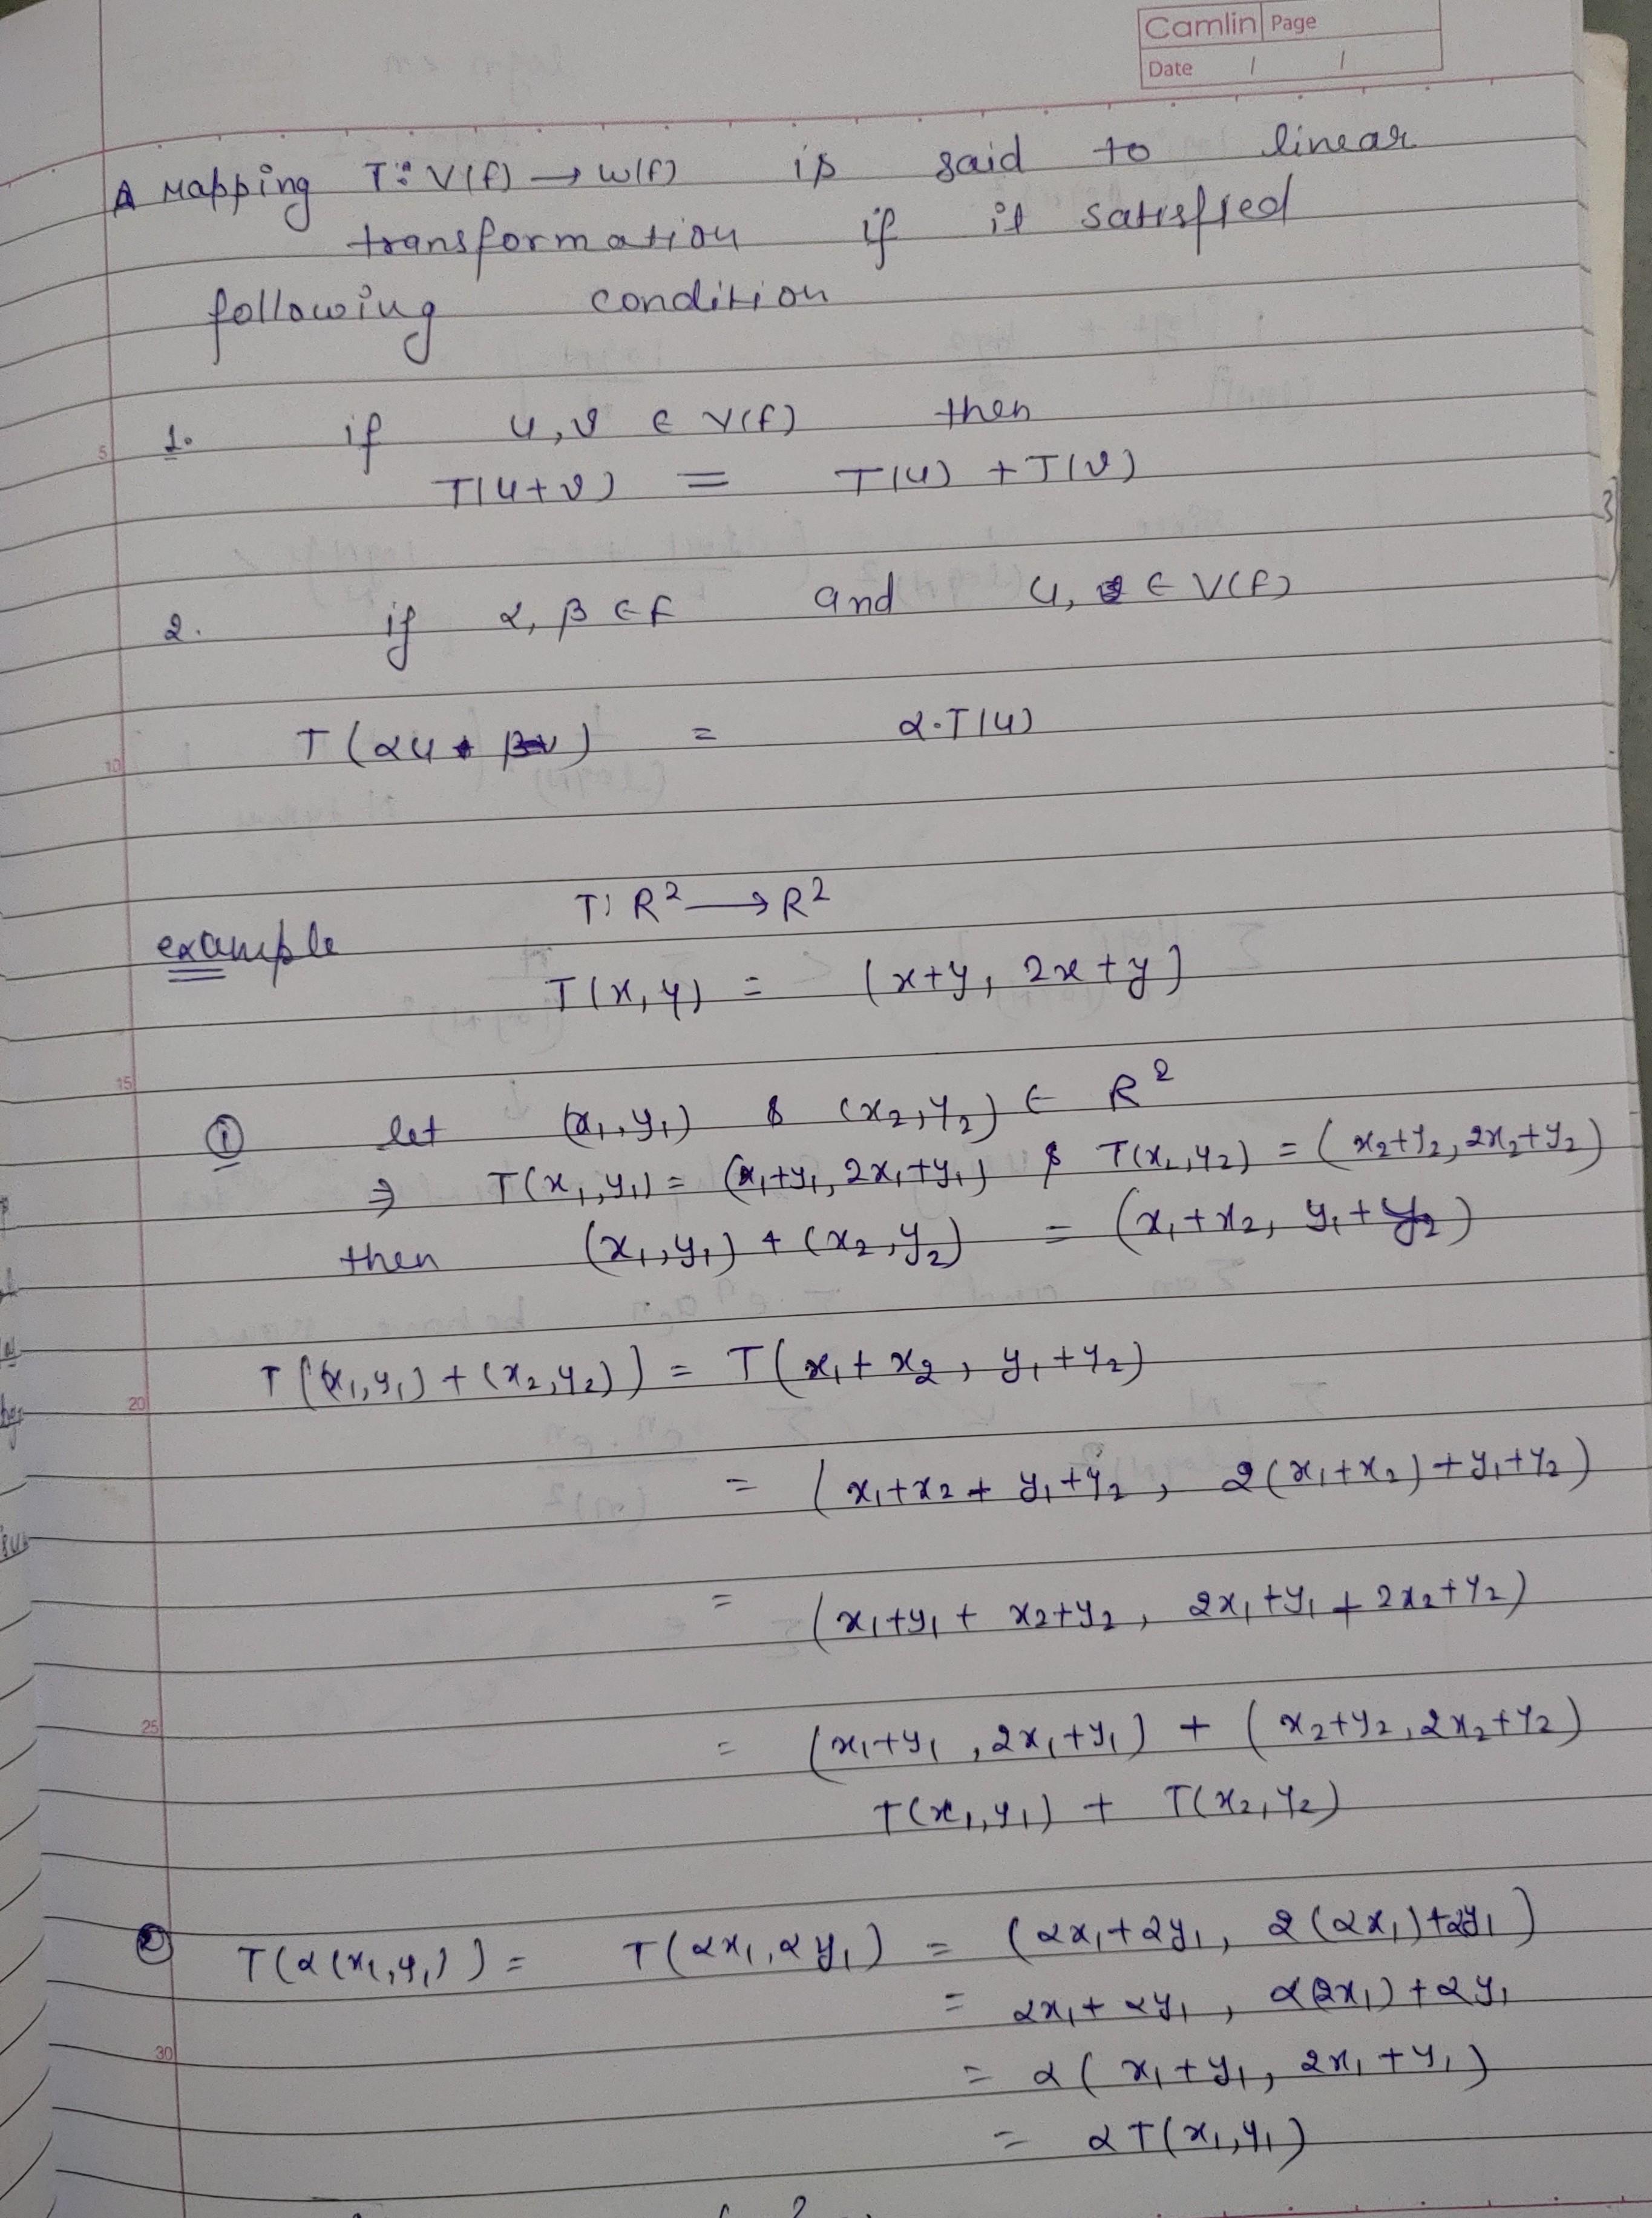 Camlin Page
Date / /
A Mapping T: V(F) → W(F) is said to linear
transformation if it satisfied
following condition
1. if u, v ∈ V(F) then
T(u+v) = T(u) + T(v)
2. if α, β ∈ F and u, ∈ V(F)
T(αu ) = α·T(u)
T: R² → R²
example
T(x, y) = (x+y, 2x+y)
① let (x₁, y₁) & (x₂, y₂) ∈ R²
⇒ T(x₁, y₁) = (x₁+y₁, 2x₁+y₁) & T(x₂, y₂) = (x₂+y₂, 2x₂+y₂)
then (x₁, y₁) + (x₂, y₂) = (x₁+x₂, y₁+y₂)
T((x₁, y₁) + (x₂, y₂)) = T(x₁+x₂, y₁+y₂)
= (x₁+x₂+y₁+y₂, 2(x₁+x₂)+y₁+y₂)
= (x₁+y₁ + x₂+y₂, 2x₁+y₁ + 2x₂+y₂)
= (x₁+y₁, 2x₁+y₁) + (x₂+y₂, 2x₂+y₂)
T(x₁, y₁) + T(x₂, y₂)
② T(α(x₁, y₁)) = T(αx₁, αy₁) = (αx₁+αy₁, 2(αx₁)+αy₁)
= αx₁+αy₁, α(2x₁)+αy₁
= α(x₁+y₁, 2x₁+y₁)
= αT(x₁, y₁)